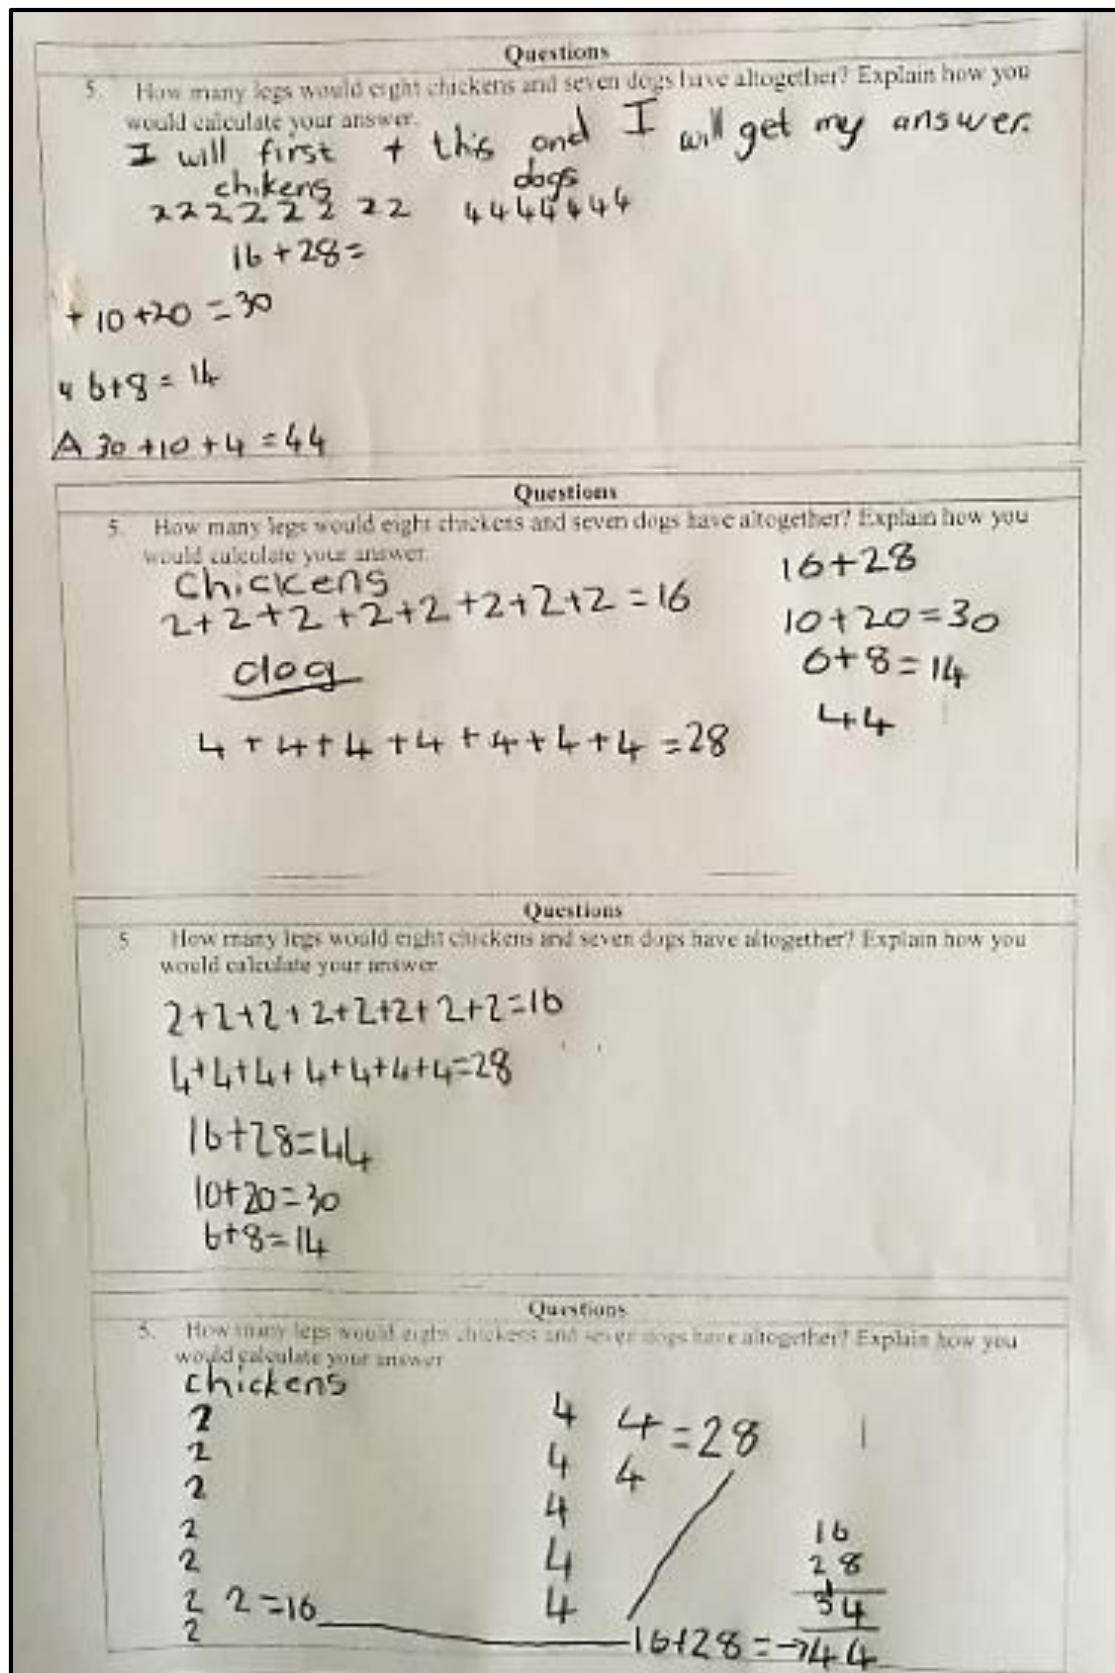 Questions
5. How many legs would eight chickens and seven dogs have altogether? Explain how you
would calculate your answer.
I will first + this and I will get my answer.
chikens dogs
2 2 2 2 2 2 2 2 4 4 4 4 4 4 4
16 + 28 =
+ 10 + 20 = 30
6 + 8 = 14
A 30 + 10 + 4 = 44
Questions
5. How many legs would eight chickens and seven dogs have altogether? Explain how you
would calculate your answer.
Chickens
2 + 2 + 2 + 2 + 2 + 2 + 2 + 2 = 16
dog
4 + 4 + 4 + 4 + 4 + 4 + 4 = 28
16 + 28
10 + 20 = 30
6 + 8 = 14
44
Questions
5 How many legs would eight chickens and seven dogs have altogether? Explain how you
would calculate your answer
2+2+2+2+2+2+2+2=16
4+4+4+4+4+4+4=28
16+28=44
10+20=30
6+8=14
Questions
5. How many legs would eight chickens and seven dogs have altogether? Explain how you
would calculate your answer
chickens
2
2
2
2
2
2 2 =16
2
4 4 =28
4 4
4
4
4
16
28
34
16+28=→44